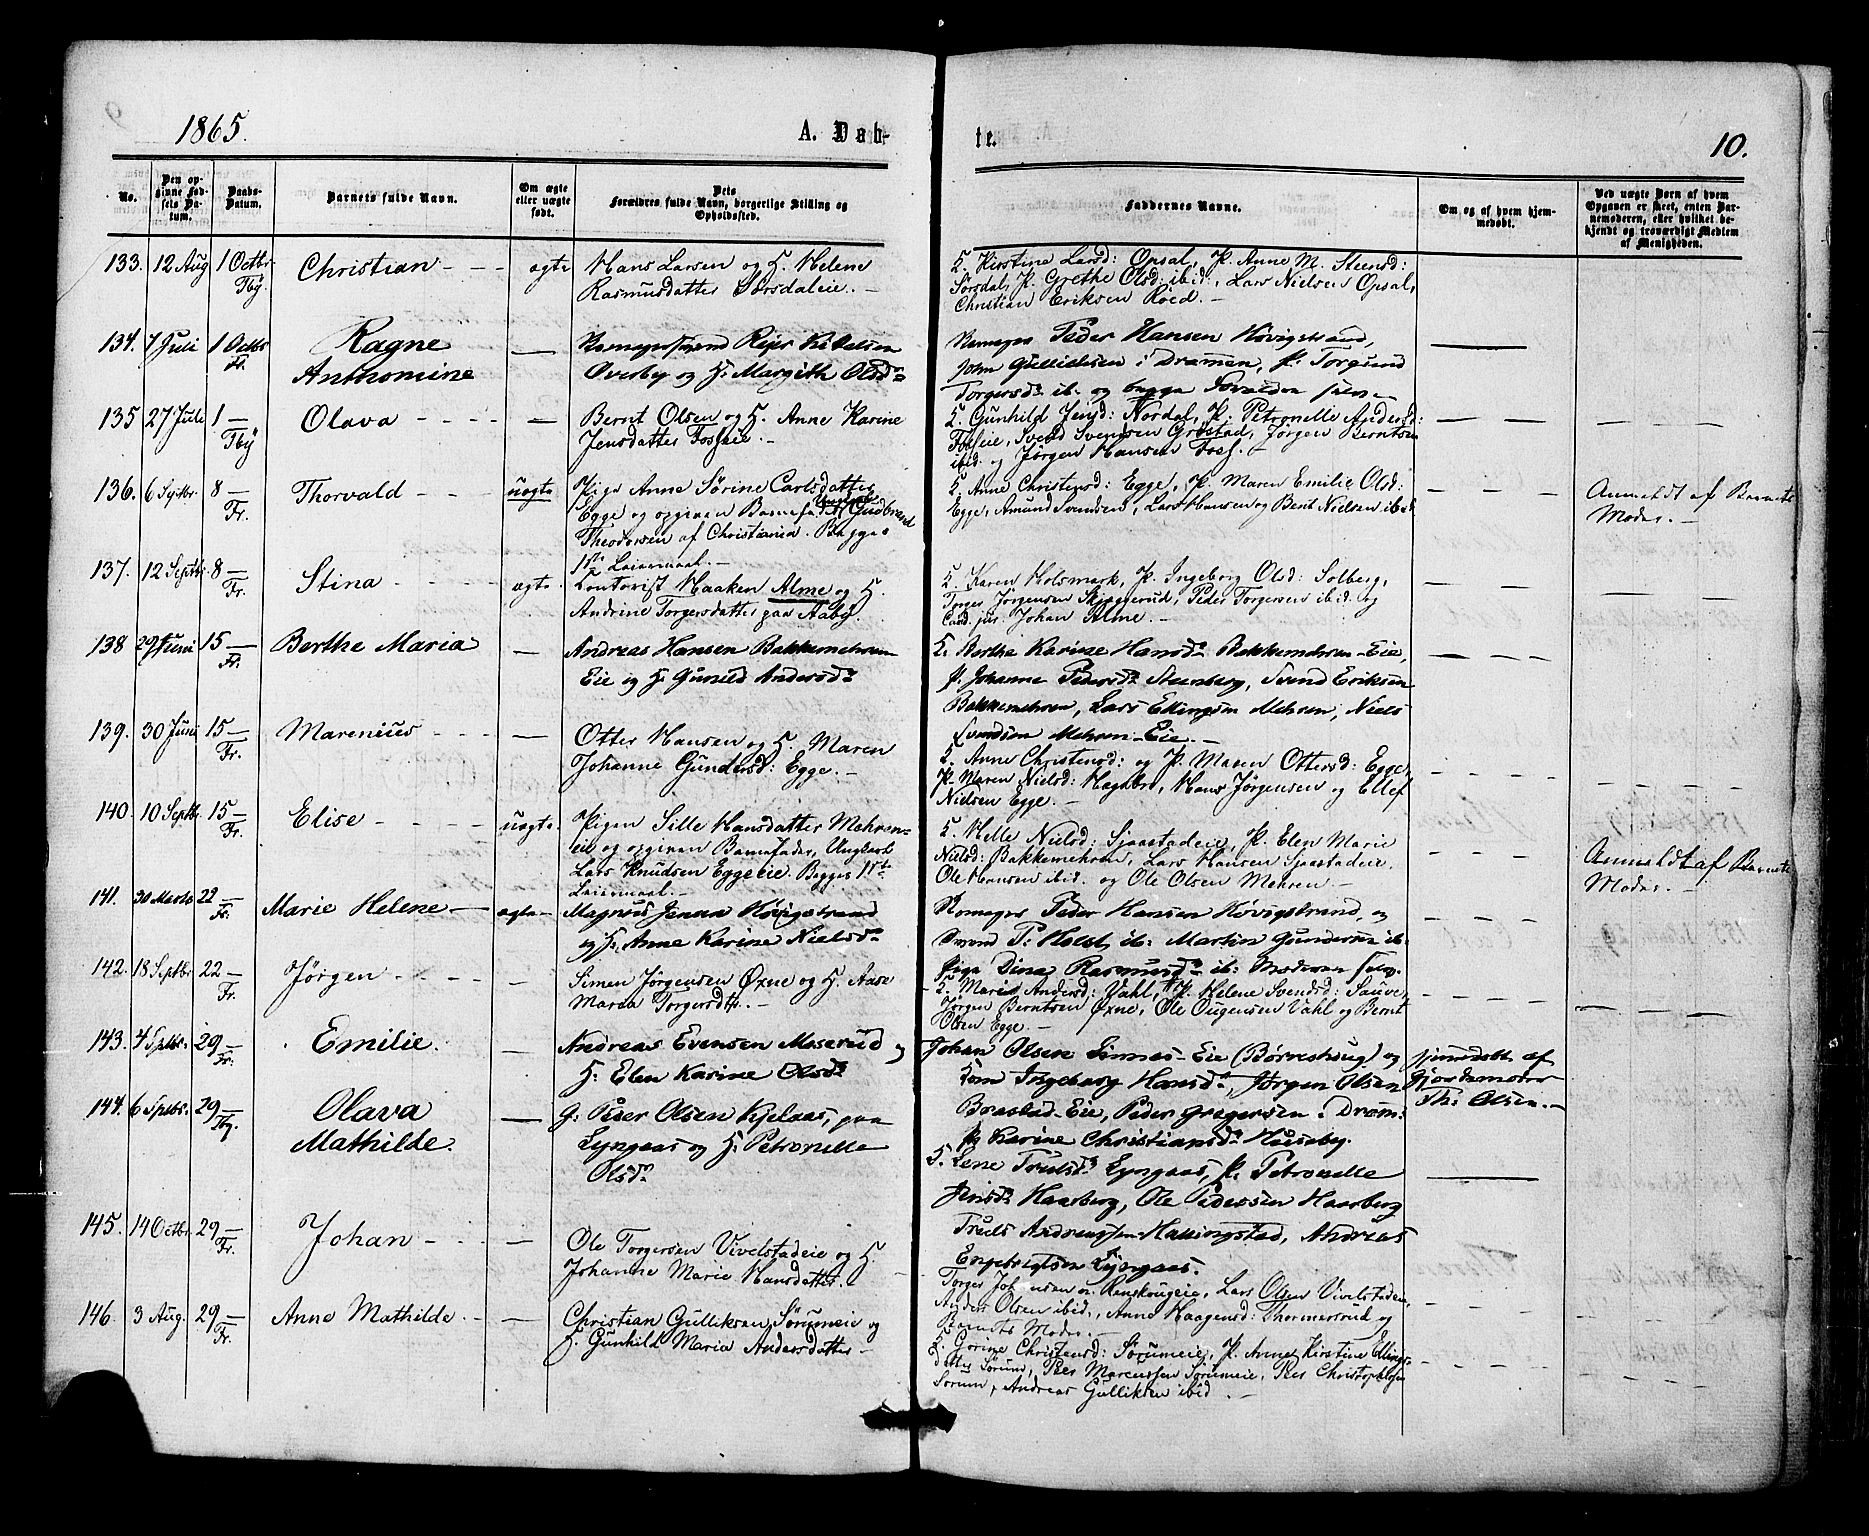 1865.
A. Døb-
te.
10.
No.
Den op-
givne Fød-
sels Da-
tum.
Daabs-
Datum.
Barnets fulde Navn.
Om ægte
eller uægte
født.
Dets
Forældres fulde Navn, borgerlige Stilling og
Opholdssted.
Faddernes Navne.
Om og af hvem hjem-
medøbt.
Ved uægte Børn af hvem
Opgaven er skeet, enten Bar-
nemoderen, eller hvilket be-
kjendt og troværdigt Medlem
af Menigheden.
133. 12 Aug 1 Octbr Tby. Christian - - - ægte
Hans Larsen og H. Helene
Rasmusdatter Sørsdaleie. -
K. Kirstine Larsd: Opsal, P. Anne M. Steensd:
Sørsdal, P. Grethe Olsd: ibid:, Lars Nielsen Opsal,
Christian Eriksen Roed. -
134. 7 Juli 1 Octbr Fr. Ragne
Anthomine —
Overby og H. Margith Olsd.
Peder Hansen Høvigstrand,
John Gulliksen i Drammen, P. Torgund
Torgersd. ib. og begge
135 27 Juli 1 — Tby Olava - - - - —
Bernt Olsen og H. Anne Karine
Jensdatter Fosseie. -
K. Gunhild Jensd: Nordal, P. Petronelle Andersd:
Fosseie, Svend Svendsen Grøstad, Jørgen Berntsen
ibid. og Jørgen Hansen Foss. -
136. 6 Septbr. 8 — Fr. Thorvald - - - uægte
Pige Anne Sørine Carlsdatter
Egge og opgiven Barnefader Ungkarl Gudbrand
Theodorsen af Christiania. Begges
1ste Leiermaal. -
K. Anne Christensd: Egge, P. Maren Emilie Olsd:
Egge, Amund Svendsen, Lars Hansen og Bent Nielsen ibid.
Anmeldt af Barnets
Moder. -
137. 12 Septbr. 8 — Fr. Stina - - - - ægte
Contorist Haaken Alme og H.
Andrine Torgersdatter paa Aaby.
K. Karen Holsmark, P. Ingeborg Olsd: Solberg,
Torger Jørgensen Skjggerud, Peder Torgersen ibid. og
Cand. jur. Johan Alme. -
138 29 Juni 15 — Fr. Berthe Maria —
Andreas Hansen Bakkemehren
Eie og H. Gunild Andersd.
K. Berthe Karine Hansd. Bakkemehren-Eie,
P. Johanne Pedersd. Steenberg, Svend Eriksen
Bakkemehren, Lars Ellingsen Mehren, Niels
Svendsen Mehren-Eie. -
139. 30 Juni 15 — Fr. Marenius - - - —
Otter Hansen og H. Maren
Johanne Gundersd: Egge. -
K. Anne Christensd: og P. Maren Ottersd: Egge,
P. Maren Nielsd: Hagabro, Hans Jørgensen og Ellef
Nielsen Egge. -
140. 10 Septbr. 15 — Fr. Elise - - - - uægte
Pigen Sille Hansdatter Mehren-
eie og opgiven Barnefader, Ungkarl
Lars Knudsen Eggeeie. Begges 1ste
Leiermaal. -
K. Helle Nielsd: Sjaastadeie, P. Elen Marie
Nielsd: Bakkemehren, Lars Hansen Sjaastadeie,
Ole Hansen ibid. og Ole Olsen Mehren. -
Anmeldt af Barnets
Moder. -
141. 30 Marts 22 — Fr. Marie Helene — ægte
Magnus Jensen Høvigstrand
og H. Anne Karine Nielsd.
Peder Hansen Høvigstrand, og
P. Holst, ib. Martin Gundersen ib.
Pige Dina Rasmusd. ib. Moderen selv.
142. 18 Septbr. 22 — Fr. Jørgen - - - - —
Simen Jørgensen Øxne og H. Aase
Maria Torgersdtr. -
K. Marie Andersd: Vahl, P. Helene Svendsd: Sauve,
Jørgen Berntsen Øxne, Ole Ougensen Vahl og Bernt
Olsen Egge. -
143. 4 Septbr. 29 — Fr. Emilie. —
Andreas Evensen Maserud og
H. Elen Karine Olsd.
Johan Olsen Linnes-Eie (Børreshaug) og
Kom Ingeborg Hansd., Jørgen Olsen
Brastad-Eie, Peder Gregersen i Dram:
P. Karine Christiansd. Huseby.
hjemmedøbt af
Gjordemoder
Th: Olsen. -
144. 6 Septbr. 29 — Tby. Olava
Mathilde. —
G: Peder Olsen Kjelaas, paa
Lyngaas og H. Petronelle
Olsd.
K. Lene Trulsd. Lyngaas, P. Petronelle
Jensd. Haarberg, Ole Pedersen Haarberg
Truls Andreassen Hallingstad, Andreas
Engebrigtsen Lyngaas.
145. 14 Octbr. 29 — Fr. Johan - - - —
Ole Torgersen Vivelstadeie og H.
Johanne Marie Hansdatter.
Torger Renskougeie, Lars Olsen Vivelstadeie,
Anders Olsen ibid., Anne Haagensd: Thormersrud og
Barnets Moder. -
146. 3 Aug. 29 — Fr. Anne Mathilde. - —
Christian Gulliksen Sørumeie og
H. Gunhild Maria Andersdatter -
K. Gorine Christensd: Sørumeie, P. Anne Kirstine Ellings-
datter Sørum, Peer Marcussen Sørumeie, Peer Christophersen
Sørum, Andreas Gulliksen ibid. -